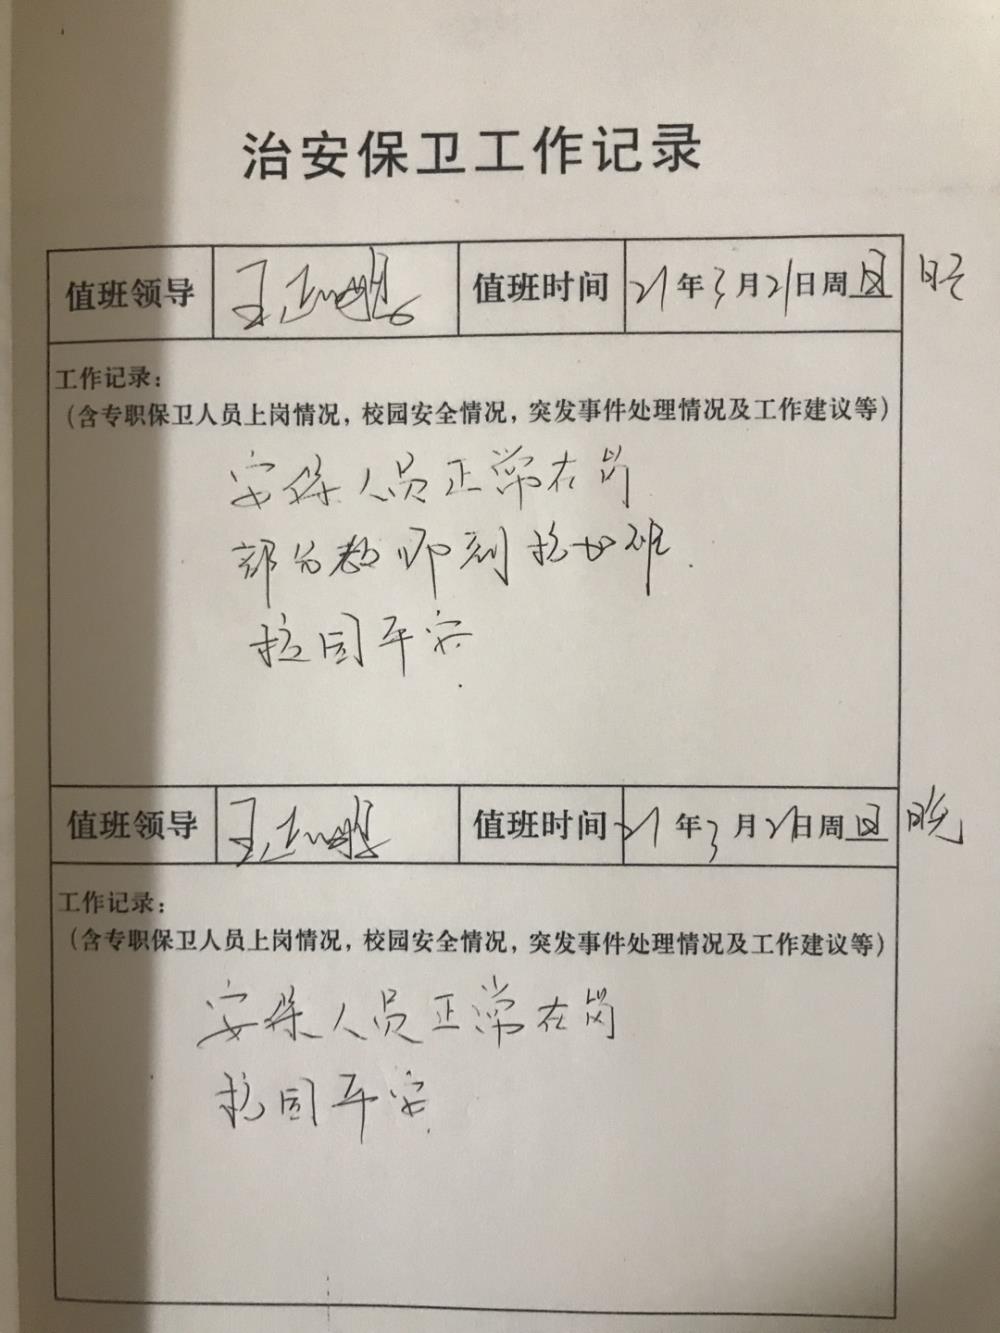 治安保卫工作记录
值班领导 王 值班时间 21年3月21日周日
工作记录：
（含专职保卫人员上岗情况，校园安全情况，突发事件处理情况及工作建议等）
安保人员正常在岗
部分教师到校加班.
校园平安.
值班领导 王 值班时间 21年3月21日周日 晚
工作记录：
（含专职保卫人员上岗情况，校园安全情况，突发事件处理情况及工作建议等）
安保人员正常在岗
校园平安.